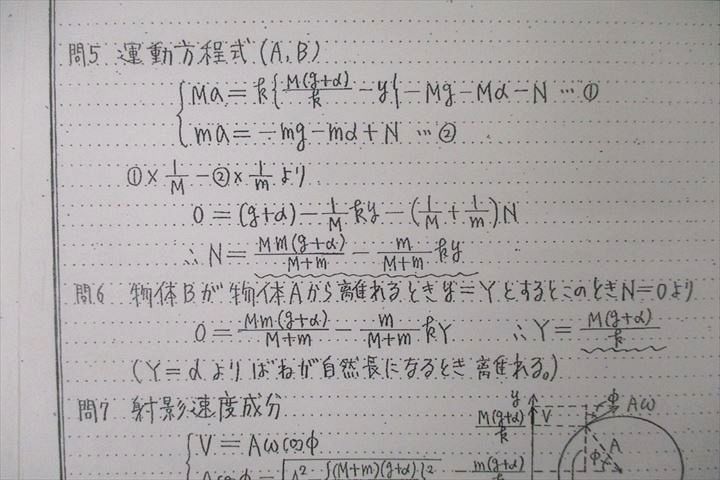 問5 運動方程式(A, B)
Ma = k{M(g+α)/k − y} − Mg − Mα − N … ①
ma = −mg − mα + N … ②
① × 1/M − ② × 1/m より
0 = (g+α) − 1/M ky − (1/M + 1/m)N
∴ N = Mm(g+α)/M+m − m/M+m ky
問6 物体Bが物体Aから離れるときy=YとするとこのときN=0より
0 = Mm(g+α)/M+m − m/M+m kY ∴ Y = M(g+α)/k
(Y=αよりばねが自然長になるとき離れる。)
問7 射影速度成分
V = Aωcosφ
y
M(g+α)/k
V
φ
Aω
A
φ
m(g+α)/k